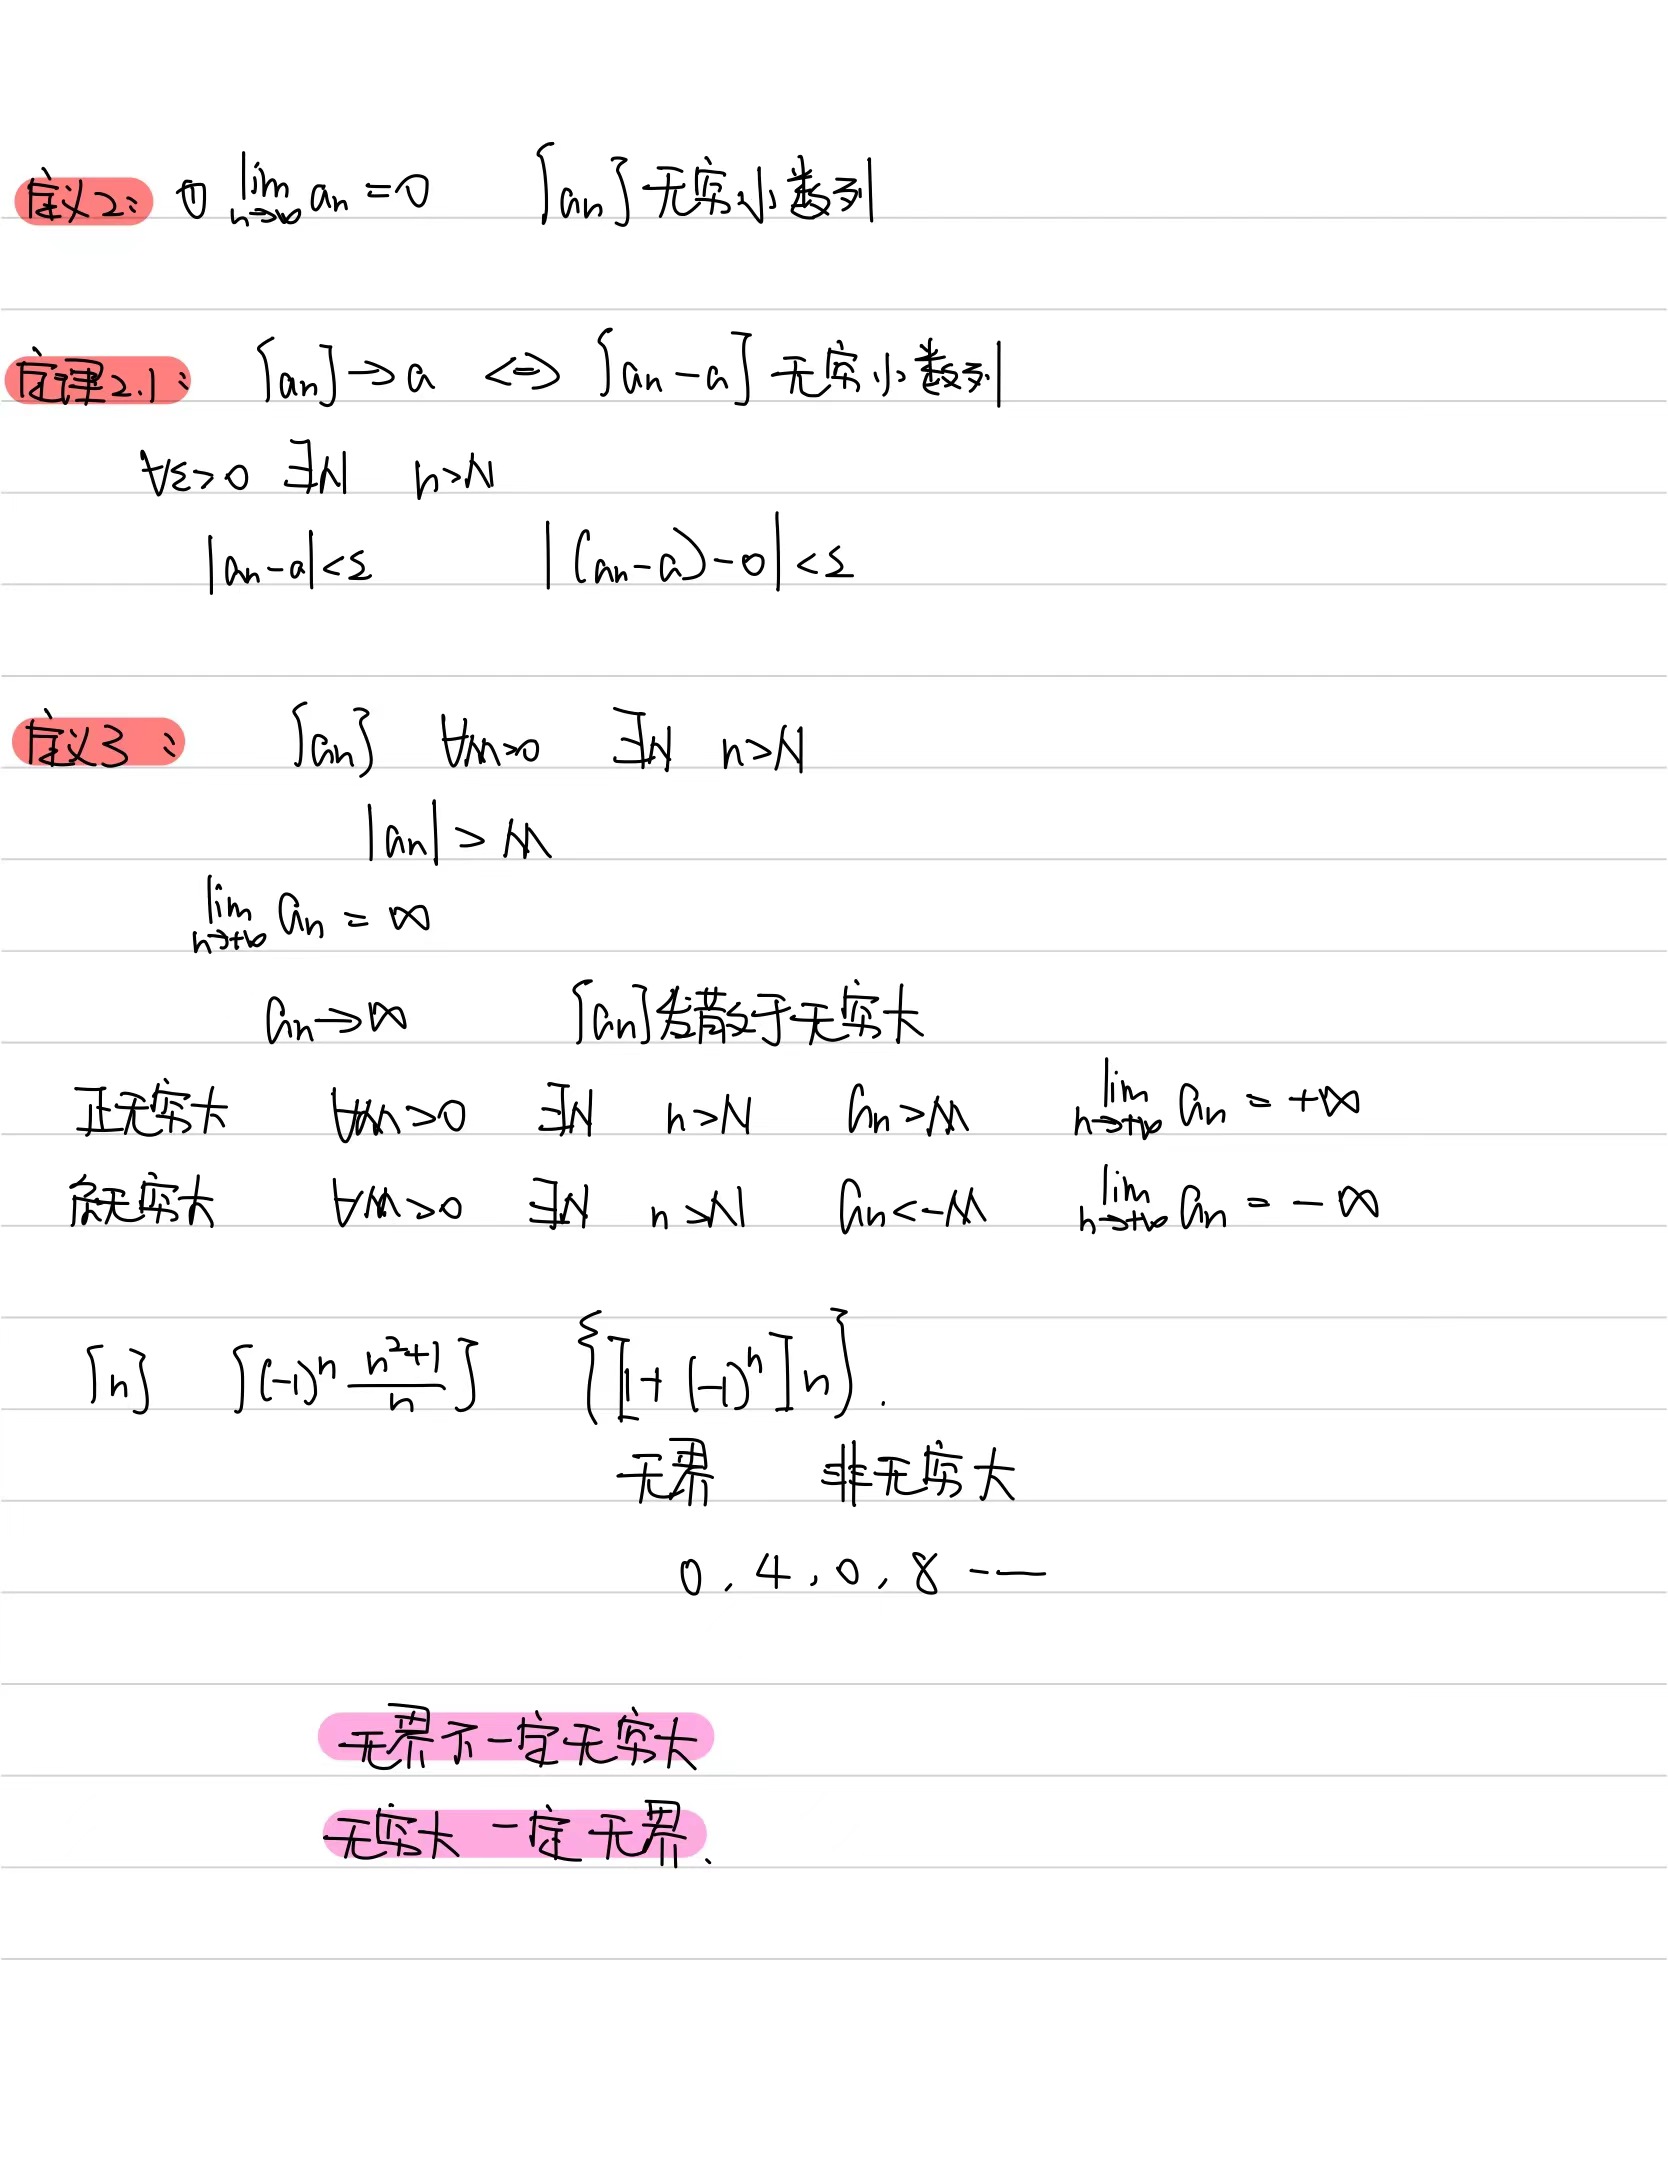 定义2: 若 lim n→∞ an = 0 {an} 无穷小数列
定理2.1: {an} → a <=> {an - a} 无穷小数列
∀ε>0 ∃N n>N
|an-a|<ε |(an-a)-0|<ε
定义3: {an} ∀M>0 ∃N n>N
|an| > M
lim n→+∞ an = ∞
an→∞ {an}发散于无穷大
正无穷大 ∀M>0 ∃N n>N an>M lim n→+∞ an = +∞
负无穷大 ∀M>0 ∃N n>N an<-M lim n→+∞ an = -∞
{n} {(-1)^n (n²+1)/n} {[1+(-1)^n]n}.
无界 非无穷大
0, 4, 0, 8 ——
无界不一定无穷大
无穷大一定无界.